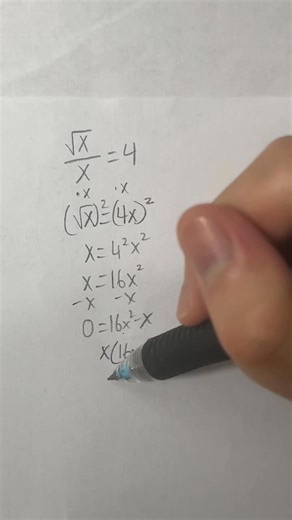 √x/x = 4
·x ·x
(√x)² = (4x)²
x = 4²x²
x = 16x²
-x -x
0 = 16x² - x
x(16